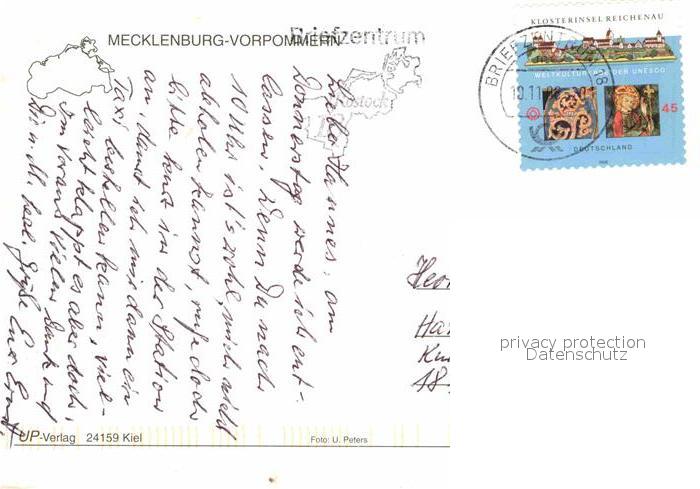 MECKLENBURG-VORPOMMERN
Briefzentrum
Rostock
18
KLOSTERINSEL REICHENAU
WELTKULTURERBE DER UNESCO
45
DEUTSCHLAND
BRIEFZENTRUM 18
Lieber Hannes! am
Donnerstag werde ich ent-
lassen, wenn Du nach
10 Uhr ist's wohl, mich
abholen kannst, rufe doch
bitte kurz in der Station
an, damit ich mir dann ein
Taxi bestellen kann, viel-
leicht klappt es aber doch.
Im Voraus vielen Dank und
Dir u. M. herzl. Grüße Euer Ernst
Ha
18
privacy protection
Datenschutz
UP-Verlag 24159 Kiel
Foto: U. Peters